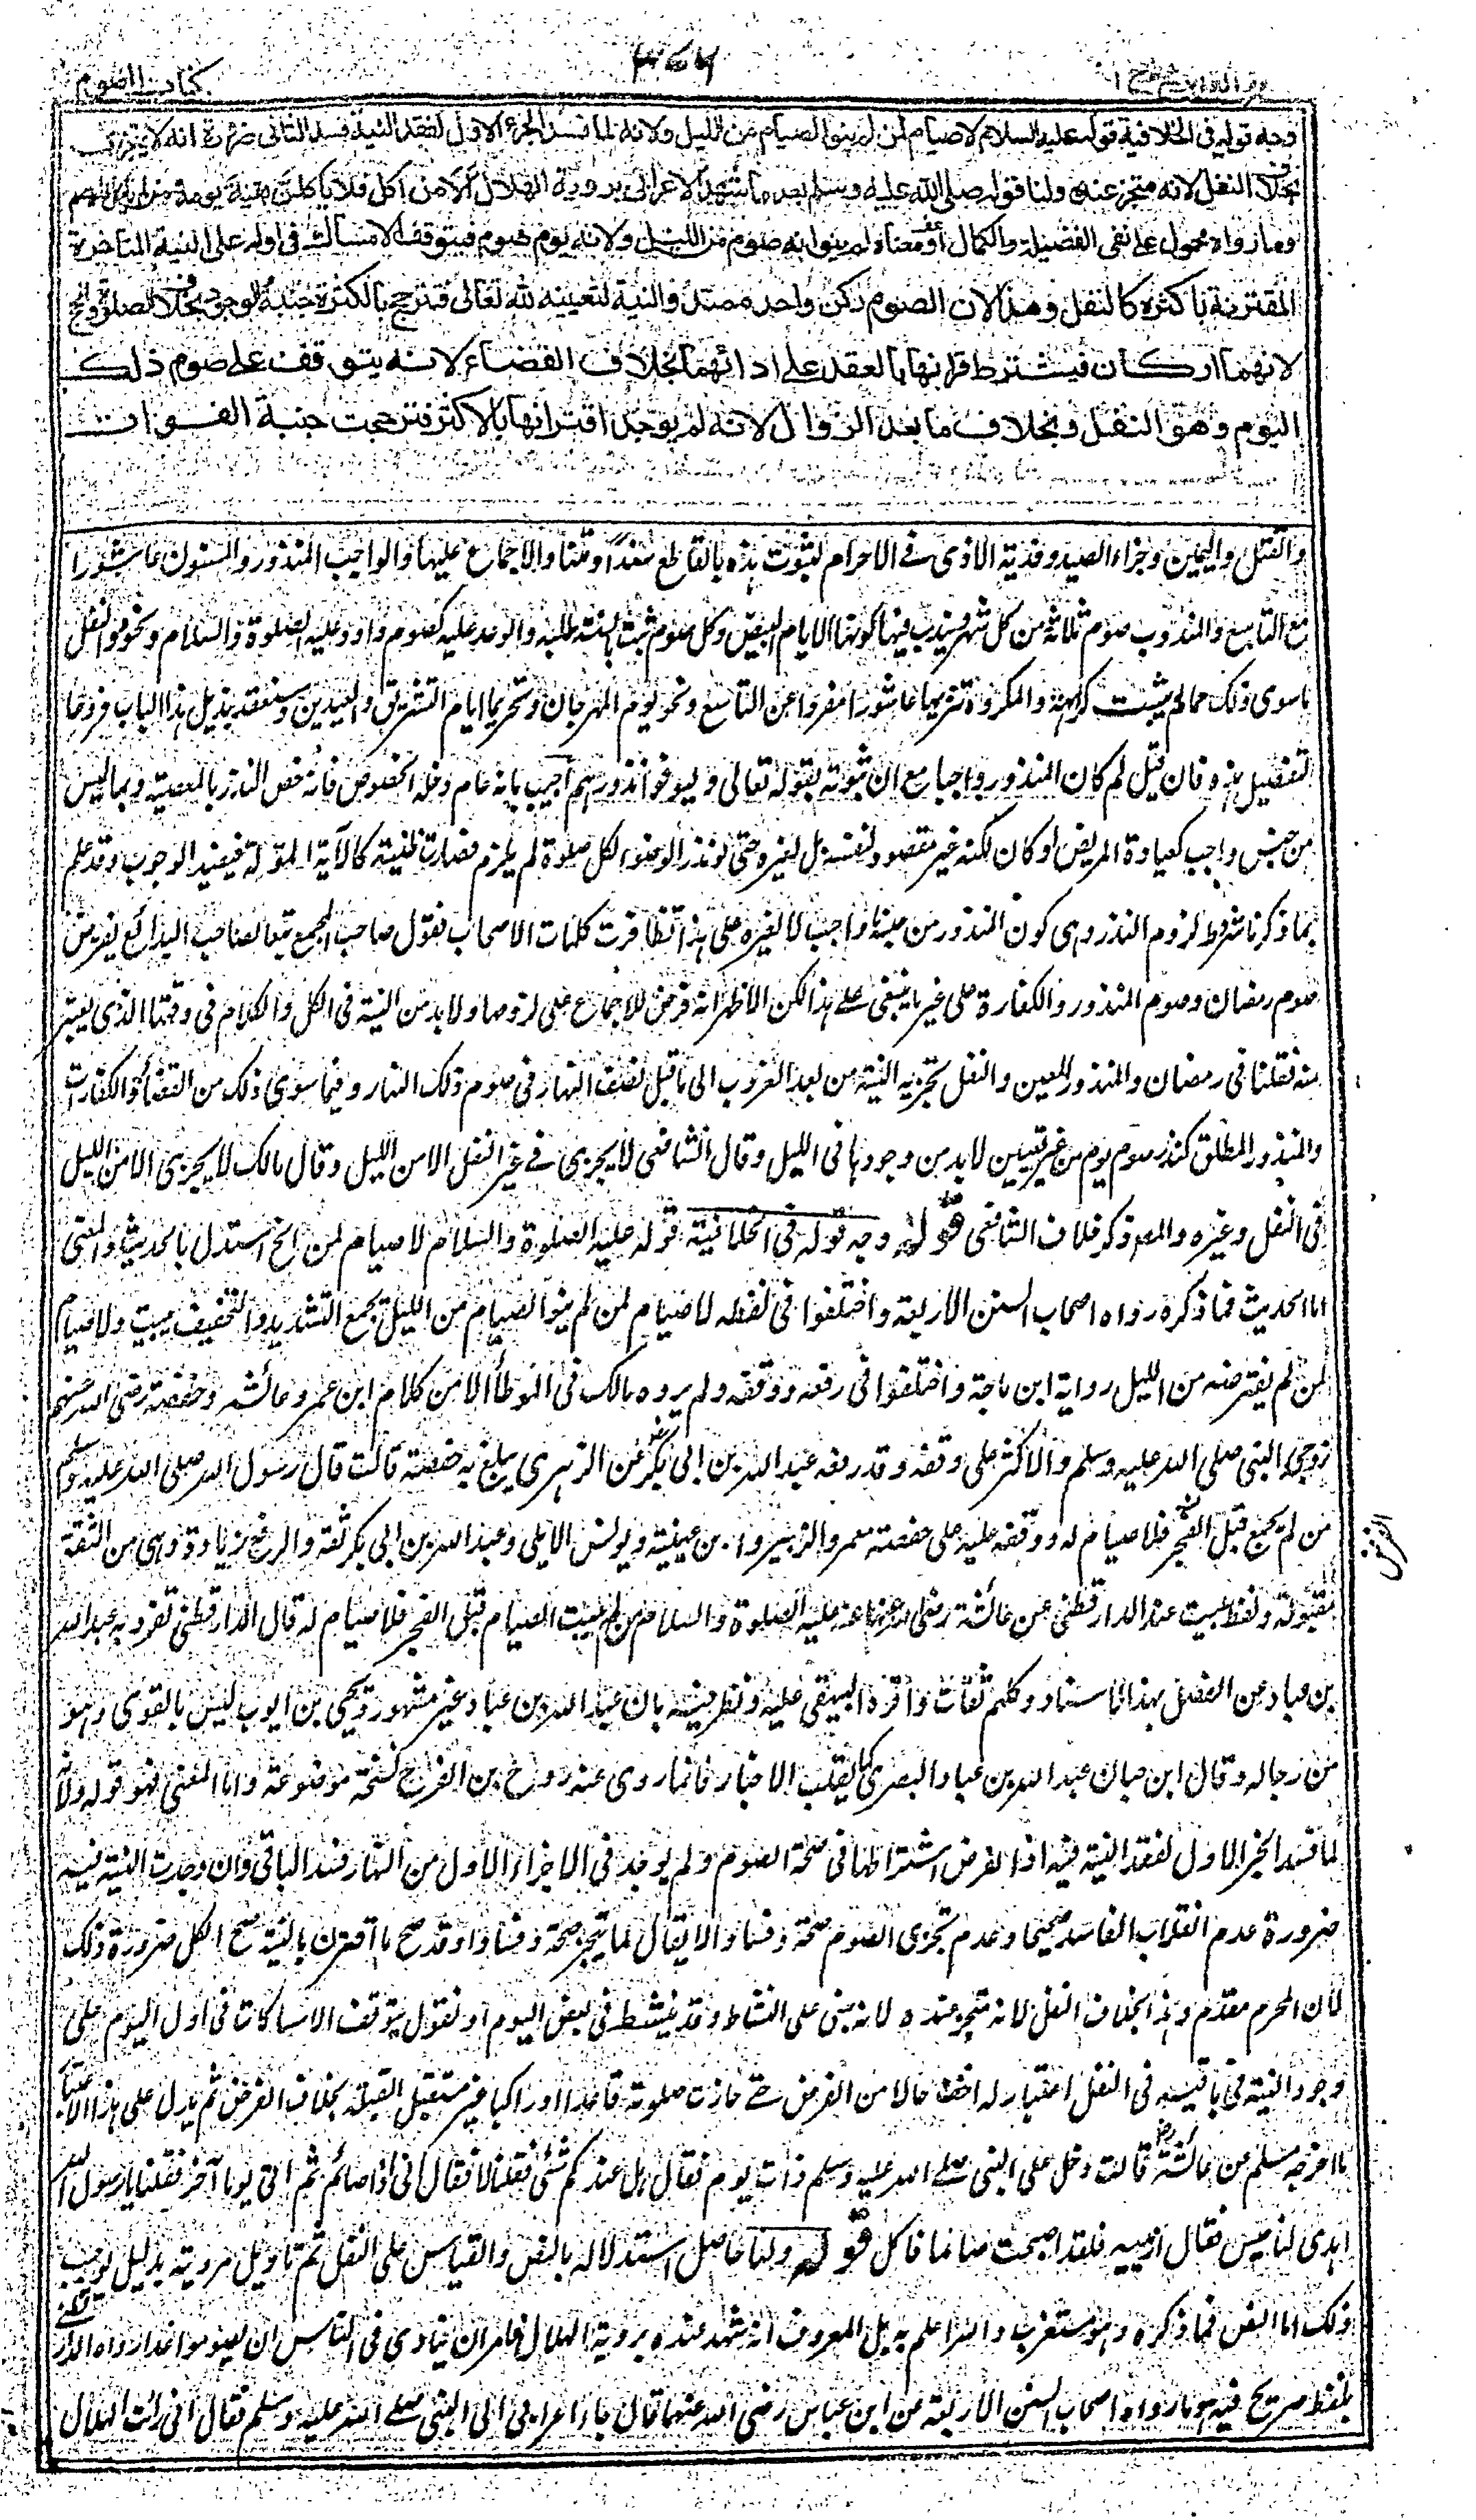 كتاب الصوم
وجه قوله في الخلافية قوله عليه السلام لا صيام لمن لم ينو الصيام من الليل ولانه لما فسد الجزء الاول لفقد النية فسد الثاني ضرورة انه لا يتجزى
بخلاف النفل لانه متجز عنده ولنا قوله صلى الله عليه وسلم بعد ما شهد الاعرابي برؤية الهلال الا من اكل فلا ياكلن بقية يومه ومن لم ياكل فليصم
وما رواه محمول على نفي الفضيلة والكمال او معناه لم ينو انه صوم من الليل ولانه يوم صوم فيتوقف الامساك في اوله على النية المتاخرة
المقترنة باكثره كالنفل وهذا لان الصوم ركن واحد ممتد والنية لتعيينه لله تعالى فتترجح بالكثرة جنبة الوجود بخلاف الصلوة والحج
لانهما اركان فيشترط قرانها بالعقد على ادائهما بخلاف القضاء لانه يتوقف على صوم ذلك
اليوم وهو النفل وبخلاف ما بعد الزوال لانه لم يوجد اقترانها بالاكثر فترجحت جنبة الفوات
والقتل واليمين وجزاء الصيد وفدية الاذى في الاحرام لثبوت هذه بالقاطع سندا ومتنا والاجماع عليها والواجب المنذور والمسنون عاشورا
مع التاسع والمندوب صوم ثلاثة من كل شهر ويندب فيها كونها الايام البيض وكل صوم ثبت بالسنة طلبه والوعد عليه كصوم داود عليه الصلوة والسلام ونحوه والنفل
ما سوى ذلك مما لم يثبت كراهته والمكروه تنزيها عاشورا مفردا عن التاسع ونحو يوم المهرجان وتحريما ايام التشريق والعيدين وسنعقد بذيل هذا الباب فروعا
لتفصيل هذه فان قيل لم كان المنذور واجبا مع ان ثبوته بقوله تعالى وليوفوا نذورهم اجيب بانه عام دخله الخصوص فانه خص النذر بالمعصية وبما ليس
من جنسه واجب كعيادة المريض او كان لكنه غير مقصود لنفسه بل لغيره حتى لو نذر الوضوء لكل صلوة لم يلزم فصارت ظنية كالآية المؤولة فيفيد الوجوب وقد علم
بما ذكرنا شروط لزوم النذر وهي كون المنذور من جنسه واجب لا لغيره على هذا تظافرت كلمات الاصحاب فقول صاحب المجمع تبعا لصاحب البدائع يفترض
صوم رمضان وصوم المنذور والكفارة على غير ما ينبغي على هذا لكن الاظهر انه فرض للاجماع على لزومها ولا بد من النية في الكل والكلام في وقتها الذي يعتبر
فيه فقلنا في رمضان والمنذور المعين والنفل تجزيه النية من بعد الغروب الى ما قبل نصف النهار في صوم ذلك النهار وفيما سوى ذلك من القضاء والكفارات
والمنذور المطلق كنذر صوم يوم من غير تعيين لا بد من وجودها في الليل وقال الشافعي لا يجزى في غير النفل الا من الليل وقال مالك لا يجزى الا من الليل
في النفل وغيره والمص ذكر خلاف الشافعي قوله وجه قوله في الخلافية قوله عليه الصلوة والسلام لا صيام لمن الخ استدل بالحديث والمعنى
اما الحديث فما ذكره رواه اصحاب السنن الاربعة واختلفوا في لفظه لا صيام لمن لم ينو الصيام من الليل يجمع التشديد والتخفيف يبيت ولا صيام
لمن لم يفترضه من الليل رواية ابن ماجة واختلفوا في رفعه ووقفه ولم يروه مالك في الموطأ الا من كلام ابن عمر وعائشة وحفصة رضي الله عنهم
زوجي النبي صلى الله عليه وسلم والاكثر على وقفه وقد رفعه عبد الله بن ابي بكر عن الزهري يبلغ به حفصة قالت قال رسول الله صلى الله عليه وسلم
من لم يجمع قبل الفجر فلا صيام له ووقفه عليه على حفصة معمر والزبيرو ابن عيينة ويونس الايلي وعبد الله بن ابي بكر ثقة والرفع زيادة وهي من الثقة
مقبولة ولفظ يبيت عند الدارقطني عن عائشة رضي الله عنها عنه عليه الصلوة والسلام من لم يبيت الصيام قبل الفجر فلا صيام له قال الدارقطني تفرد به عبد الله
بن عباد عن المفضل بهذا الاسناد وكلهم ثقات واقره البيهقي عليه ونظر فيه بان عبد الله بن عباد غير مشهور ويحيى بن ايوب ليس بالقوي وهو
من رجاله وقال ابن حبان عبد الله بن عباد البصري يقلب الاخبار فانما روى عنه روح بن الفرج نسخة موضوعة واما المعنى فهو قوله ولانه
لما فسد الجزء الاول لفقد النية فيه اذ الفرض اشتراطها في صحة الصوم ولم يوجد في الاجزاء الاول من النهار فسد الباقي وان وجدت النية فيه
ضرورة عدم انقلاب الفاسد صحيحا وعدم تجزى الصوم صحة وفسادا لا يقال لما يتجز صحة وفسادا وقد صح ما اقترن بالنية صح الكل ضرورة ذلك
لان المحرم مقدم وهذا بخلاف النفل لانه متجز عنده لانه مبني على النشاط وقد ينشط في بعض اليوم او نقول يتوقف الامساكات في اول اليوم على
وجود النية في باقيه في النفل اعتبار له اخف حالا من الفرض حتى جازت صلوته قاعدا او راكبا غير مستقبل القبلة بخلاف الفرض ثم يدل على هذا الاعتبار
ما اخرجه مسلم عن عائشة قالت دخل على النبي صلى الله عليه وسلم ذات يوم فقال هل عندكم شئ فقلنا لا فقال اني اذا صائم ثم اتى يوما آخر فقلنا يا رسول الله
اهدى لنا حيس فقال ارينيه فلقد اصبحت صائما فاكل قوله ولنا حاصل استدلاله بالنص والقياس على النفل ثم تاويل مرويه بدليل يوجب
ذلك اما النص فما ذكره وهو مستغرب والله اعلم به بل المعروف انه شهد عنده برؤية الهلال فامر ان ينادى في الناس ان يصوموا غدا رواه الدارقطني
بلفظ صريح فيه وما رواه اصحاب السنن الاربعة عن ابن عباس رضي الله عنهما قال جاء اعرابي الى النبي صلى الله عليه وسلم فقال اني رأيت الهلال